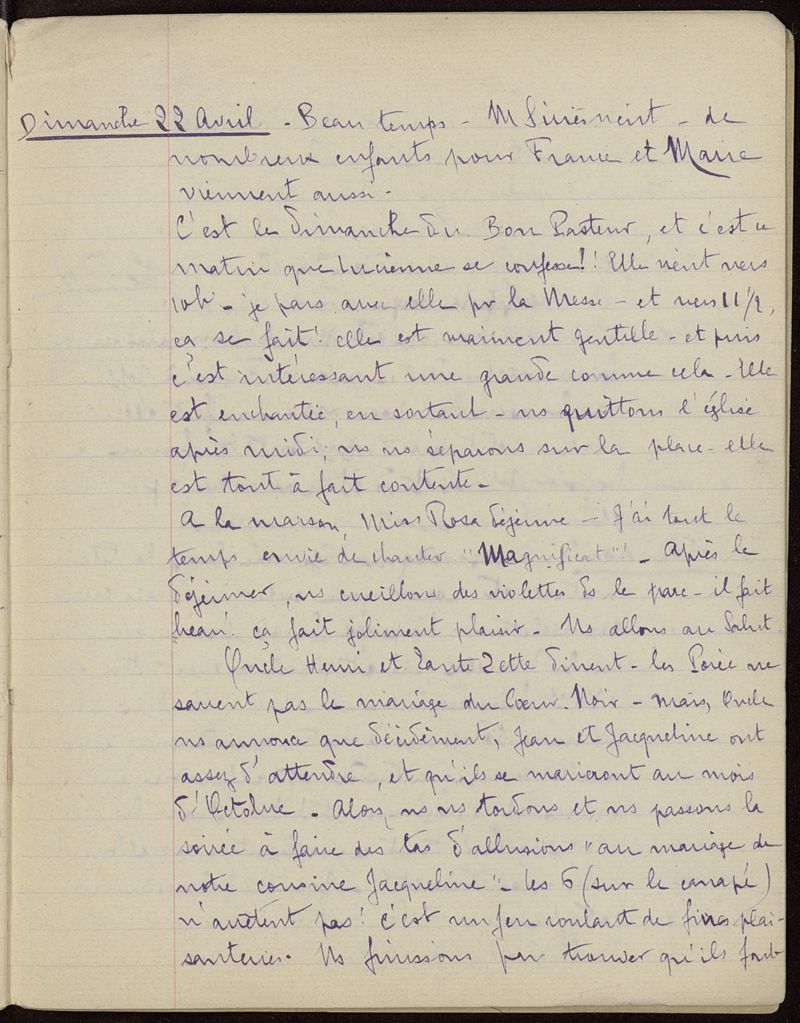 Dimanche 22 Avril - Beau temps - M vient - de
nombreux enfants pour France et Marie
viennent aussi -
C'est le dimanche du Bon Pasteur, et c'est ce
matin que Lucienne se confesse!! Elle vient vers
10h - je pars avec elle pr la Messe - et vers 11 1/2,
ça se fait! elle est vraiment gentille - et puis
c'est intéressant une grande comme cela - Elle
est enchantée, en sortant - ns quittons l'église
après midi, ns ns séparons sur la place - elle
est tout à fait contente -
A la maison, Miss Rosa déjeune - J'ai tout le
temps envie de chanter "Magnificat"! - Après le
déjeuner, ns cueillons des violettes ds le parc - il fait
beau! ça fait joliment plaisir - Ns allons au Salut
Oncle Henri et Tante Zette dînent - les Poiée ne
savent pas le mariage du Coeur. Noir - mais, Oncle
ns annonce que décidément, Jean et Jacqueline ont
assez d'attendre, et qu'ils se marieront au mois
d'Octobre - Alors, ns ns tordons et ns passons la
soirée à faire des tas d'allusions "au mariage de
notre cousine Jacqueline" - les 6 (sur le canapé)
n'arrêtent pas! c'est un feu roulant de fines plai-
santeries - Ns finissons par trouver qu'ils font